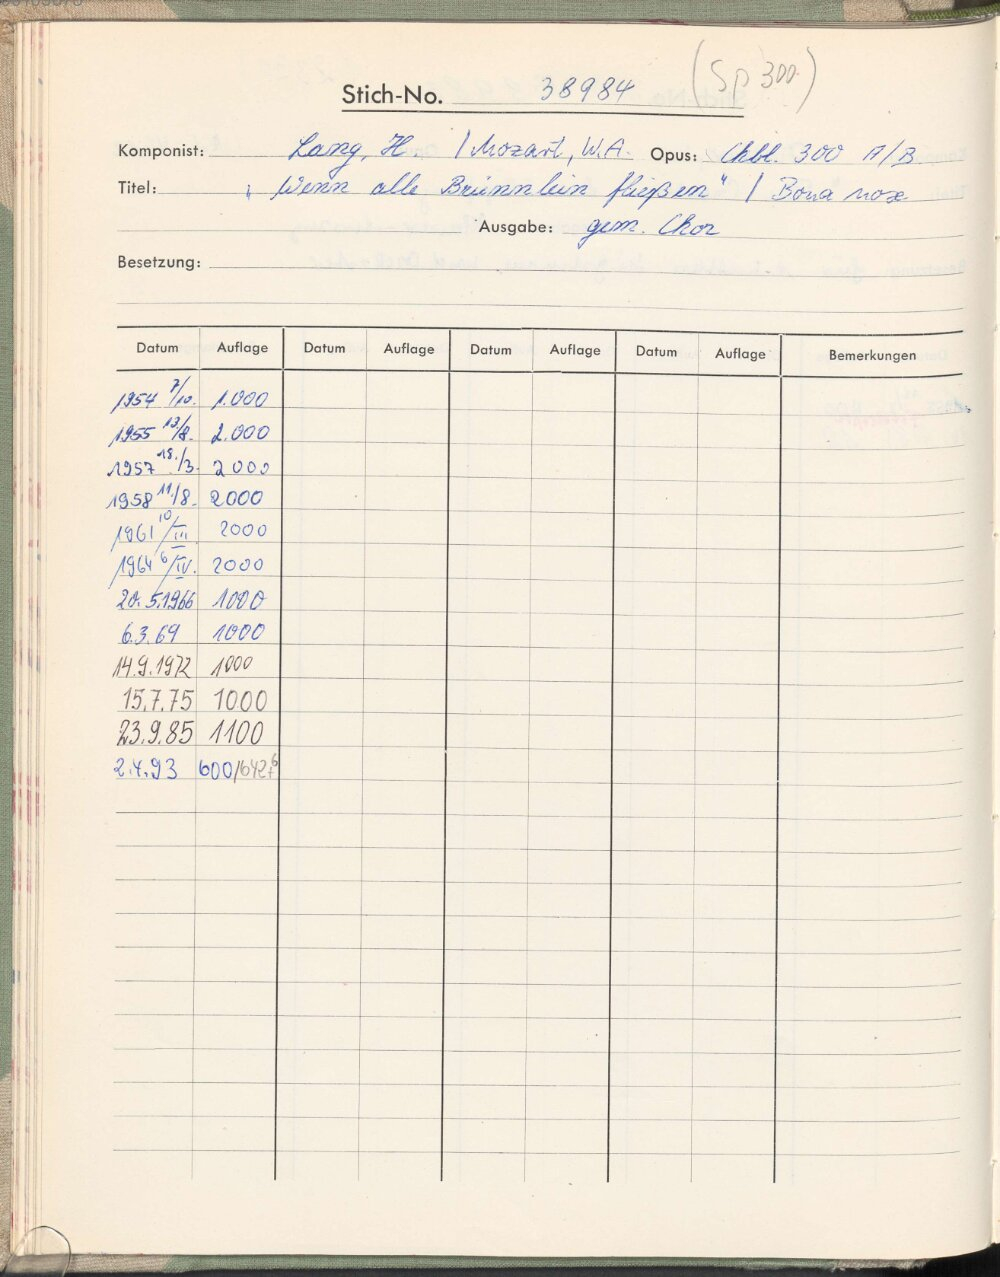 Stich-No. 38984 (Sp 300)
Komponist: Lang, H. / Mozart, W.A. Opus: Chbl. 300 A/B
Titel: „Wenn alle Brünnlein fließen" / Bona nox
Ausgabe: gem. Chor
Besetzung:
Datum Auflage Datum Auflage Datum Auflage Datum Auflage Bemerkungen
1954 7/10. 1.000
1955 13/8. 2.000
1957 18./3. 2000
1958 11./8. 2000
1961 10/III. 2000
1964 6/IV. 2000
20.5.1966 1000
6.3.69 1000
14.9.1972 1000
15.7.75 1000
23.9.85 1100
2.4.93 600/642